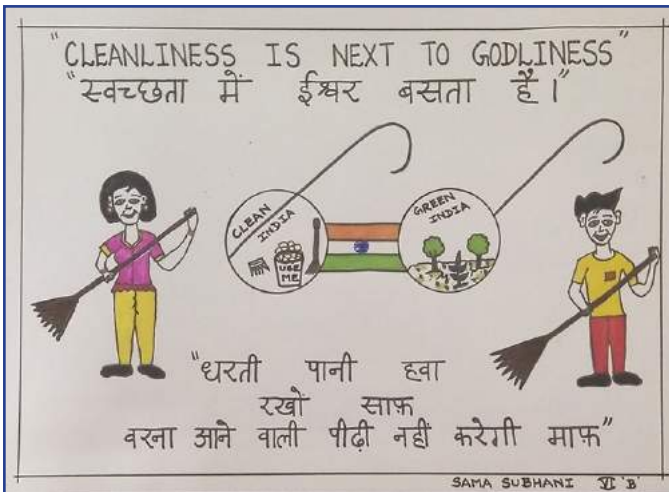 "CLEANLINESS IS NEXT TO GODLINESS"
"स्वच्छता में ईश्वर बसता है।"
CLEAN
INDIA
USE
ME
GREEN
INDIA
"धरती पानी हवा
रखों साफ़
वरना आने वाली पीढ़ी नहीं करेगी माफ़"
SAMA SUBHANI VI 'B'